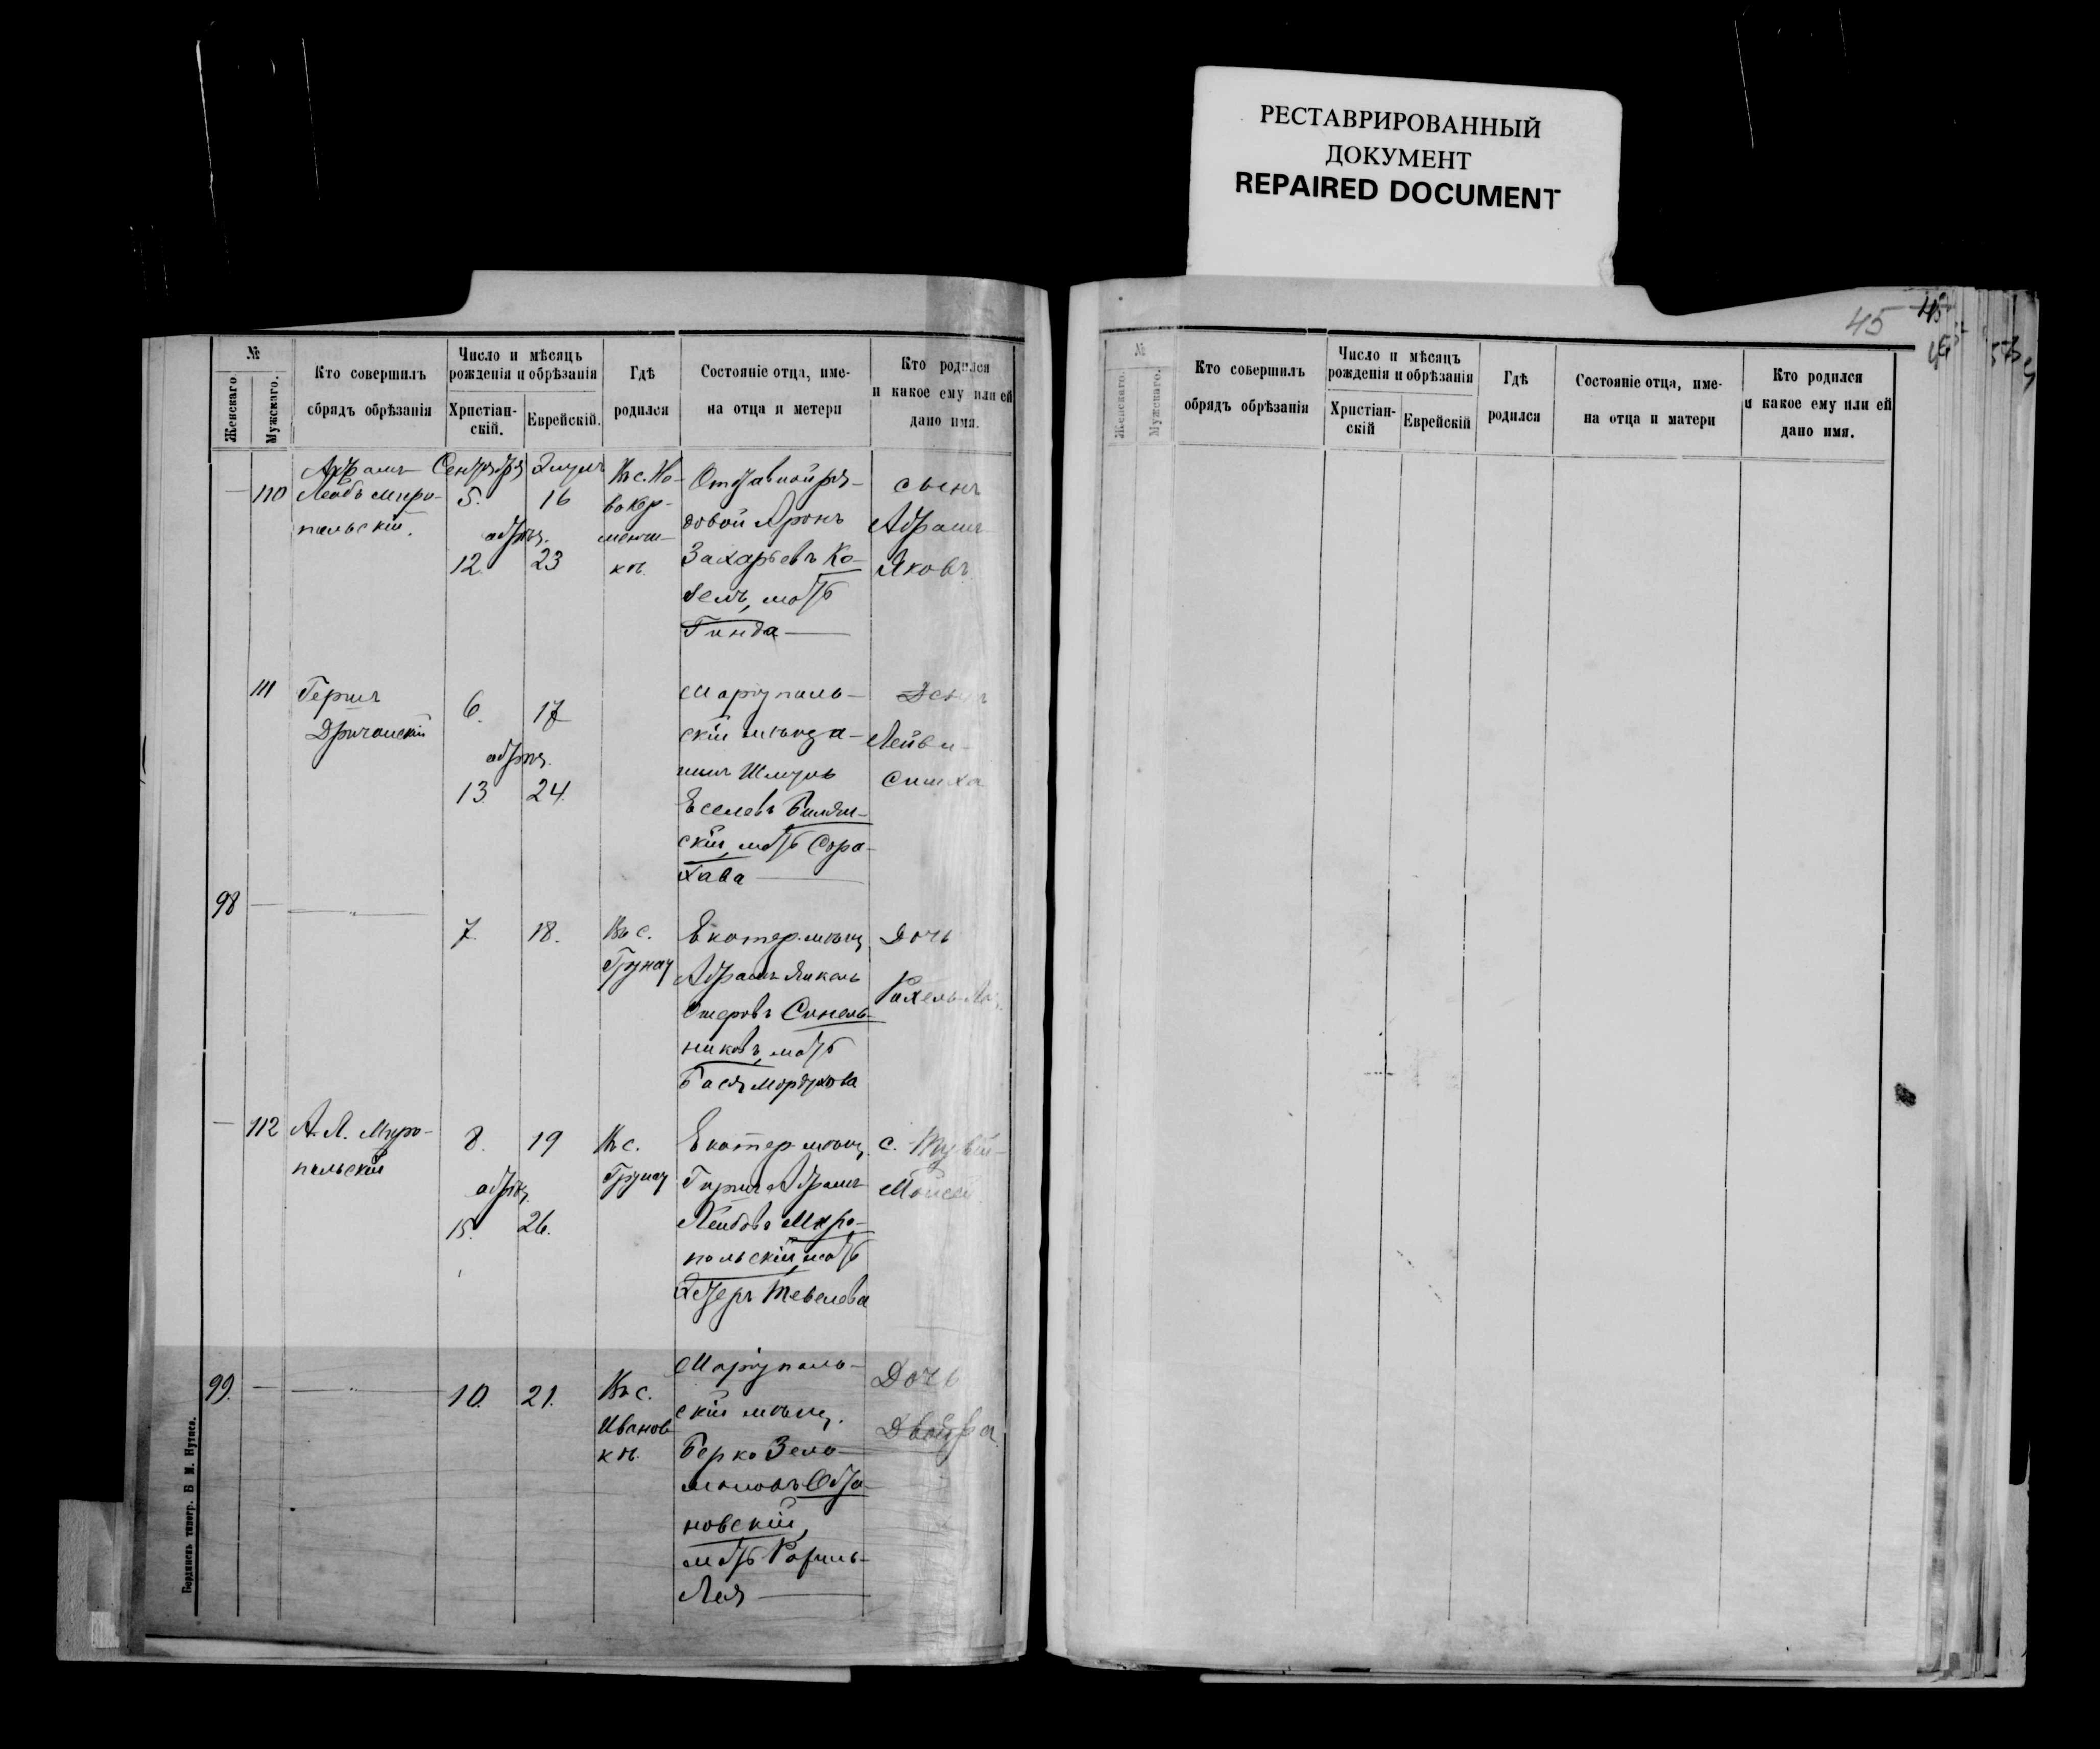 РЕСТАВРИРОВАННЫЙ
ДОКУМЕНТ
REPAIRED DOCUMENT
45
№
Женскаго
Мужскаго.
Кто совершилъ
сбрядъ обрѣзанія
Число и мѣсяцъ
рожденія и обрѣзанія
Христіан-
скій.
Еврейскій.
Гдѣ
родился
Состояніе отца, име-
на отца и метери
Кто родился
и какое ему или ей
дано имя.
110
Абрамъ
Леобъ Миро-
польскій.
Сентября
5.
обрѣз.
12.
Элулъ
16
23
Въ с. Но-
вокар-
менчи-
кѣ.
Отставной ря-
довой Аронъ
Захарьевъ Ко-
белъ, мать
Гинда
сынъ
Абрамъ
Яковъ
111
Гершъ
6.
обрѣз.
13.
17
24.
Маріуполь-
скій мѣща-
нинъ Шмуль
Еселевъ
скій, мать Сора-
Хава
Лейви-
Симха
98
7.
18.
Въ с.
Грунау
Екатер. мѣщ.
Абрамъ Янкель
Ошеровъ Синель-
никовъ, мать
Бася Мордухова
Дочь
Рахель
112
А. Л. Миро-
польскій
8.
обрѣз.
15.
19
26.
Въ с.
Грунау
Екатер. мѣщ.
Гиршъ Абрамъ
Лейбовъ Миро-
польскій, мать
Эстеръ Тевелева
с.
Моисей
99.
10.
21.
Въ с.
Иванов
кѣ.
Маріуполь-
скій мѣщ.
Берко Зело-
моновъ
новскій,
мать
Лея
Дочь
Двойра
Бердянскъ типогр.
№
Женскаго.
Мужскаго.
Кто совершилъ
обрядъ обрѣзанія
Число и мѣсяцъ
рожденія и обрѣзанія
Христіан-
скій
Еврейскій
Гдѣ
родился
Состояніе отца, име-
на отца и матери
Кто родился
и какое ему или ей
дано имя.